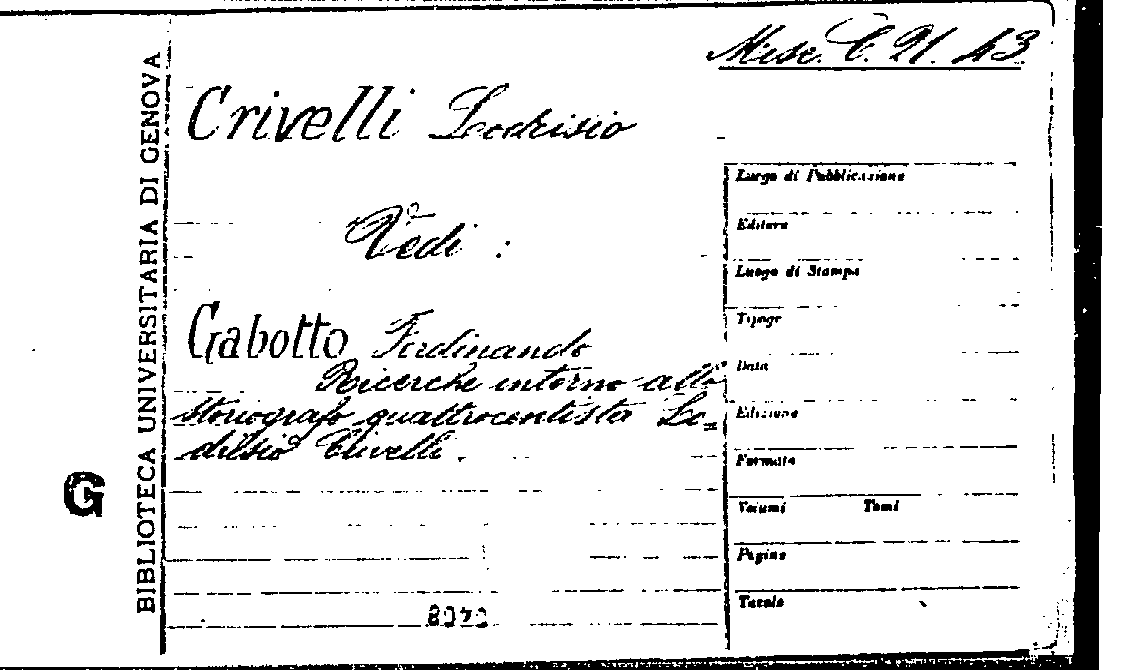 Misc. C. 91. 43
Crivelli Lodrisio
Vedi :
Gabotto Ferdinando
Ricerche intorno allo
storiografo quattrocentista Lo=
drisio Crivelli.
8070
BIBLIOTECA UNIVERSITARIA DI GENOVA
G
Luogo di Pubblicazione
Editore
Luogo di Stampa
Tipogr
Data
Edizione
Formato
Volumi Tomi
Pagine
Tavole